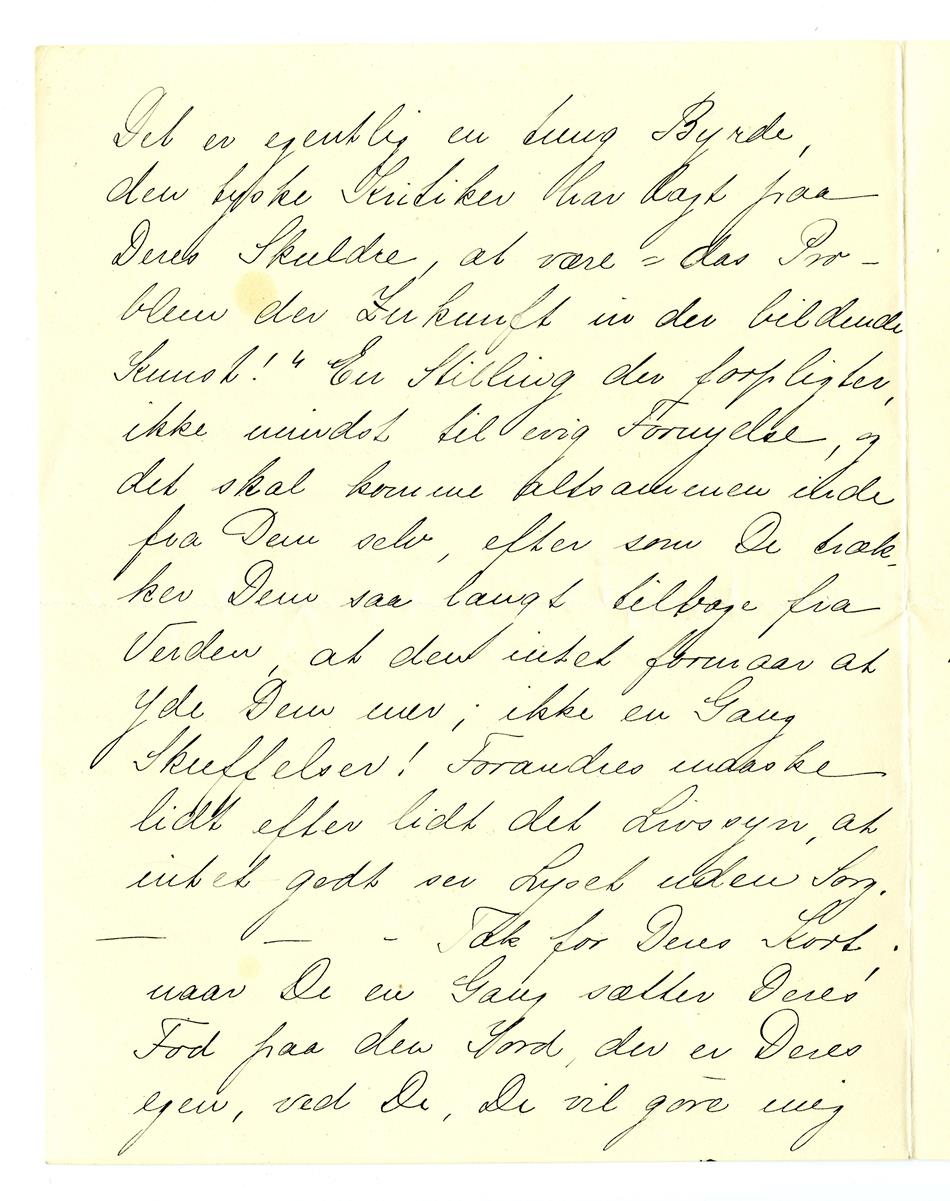 Det er egentlig en tung Byrde,
den tyske Kritiker har lagt paa
Deres Skuldre, at være = das Pro-
blem der Zukunft in der bildende
Kunst!" En Stilling der forpligter,
ikke mindst til evig Fornyelse, og
det skal komme altsammen inde
fra Dem selv, efter som De træk-
ker Dem saa langt tilbage fra
Verden, at den intet formaar at
yde Dem mer; ikke en Gang
Skuffelser! Forandres maaske
lidt efter lidt det Livssyn, at
intet godt ser Lyset uden Sorg.
— — - Tak for Deres Kort,
naar De en Gang sætter Deres
Fod paa den Jord, der er Deres
egen, ved De, De vil göre mig